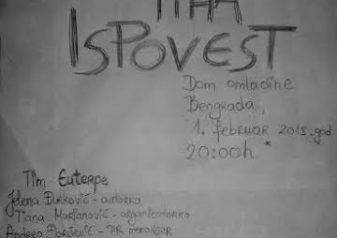 TIHA
ISPOVEST
Dom omladine
Beograda,
1. februar 2015. god
20:00h *
Tim Euterpe
Jelena Đurković - autorka
Tiana Marjanović - organizatorka
Andrea Đorđević - PR menadžer